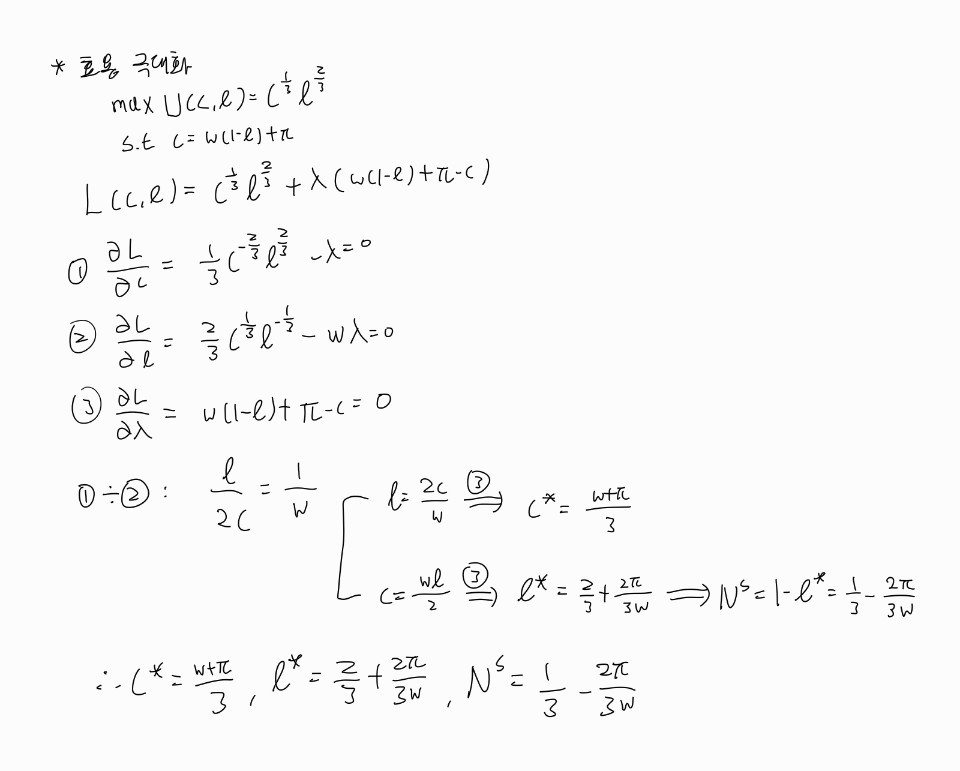 * 효용 극대화
max U(c,l) = C^{1/3} l^{2/3}
s.t c = w(1-l)+π
L(c,l) = C^{1/3} l^{2/3} + λ(w(1-l)+π-c)
① ∂L/∂c = 1/3 C^{-2/3} l^{2/3} - λ = 0
② ∂L/∂l = 2/3 C^{1/3} l^{-1/3} - wλ = 0
③ ∂L/∂λ = w(1-l)+π-c = 0
①÷② : l/2C = 1/w
l = 2c/w ③⟹ C* = (w+π)/3
c = wl/2 ③⟹ l* = 2/3 + 2π/3w ⟹ N^s = 1-l* = 1/3 - 2π/3w
∴ C* = (w+π)/3 , l* = 2/3 + 2π/3w , N^s = 1/3 - 2π/3w